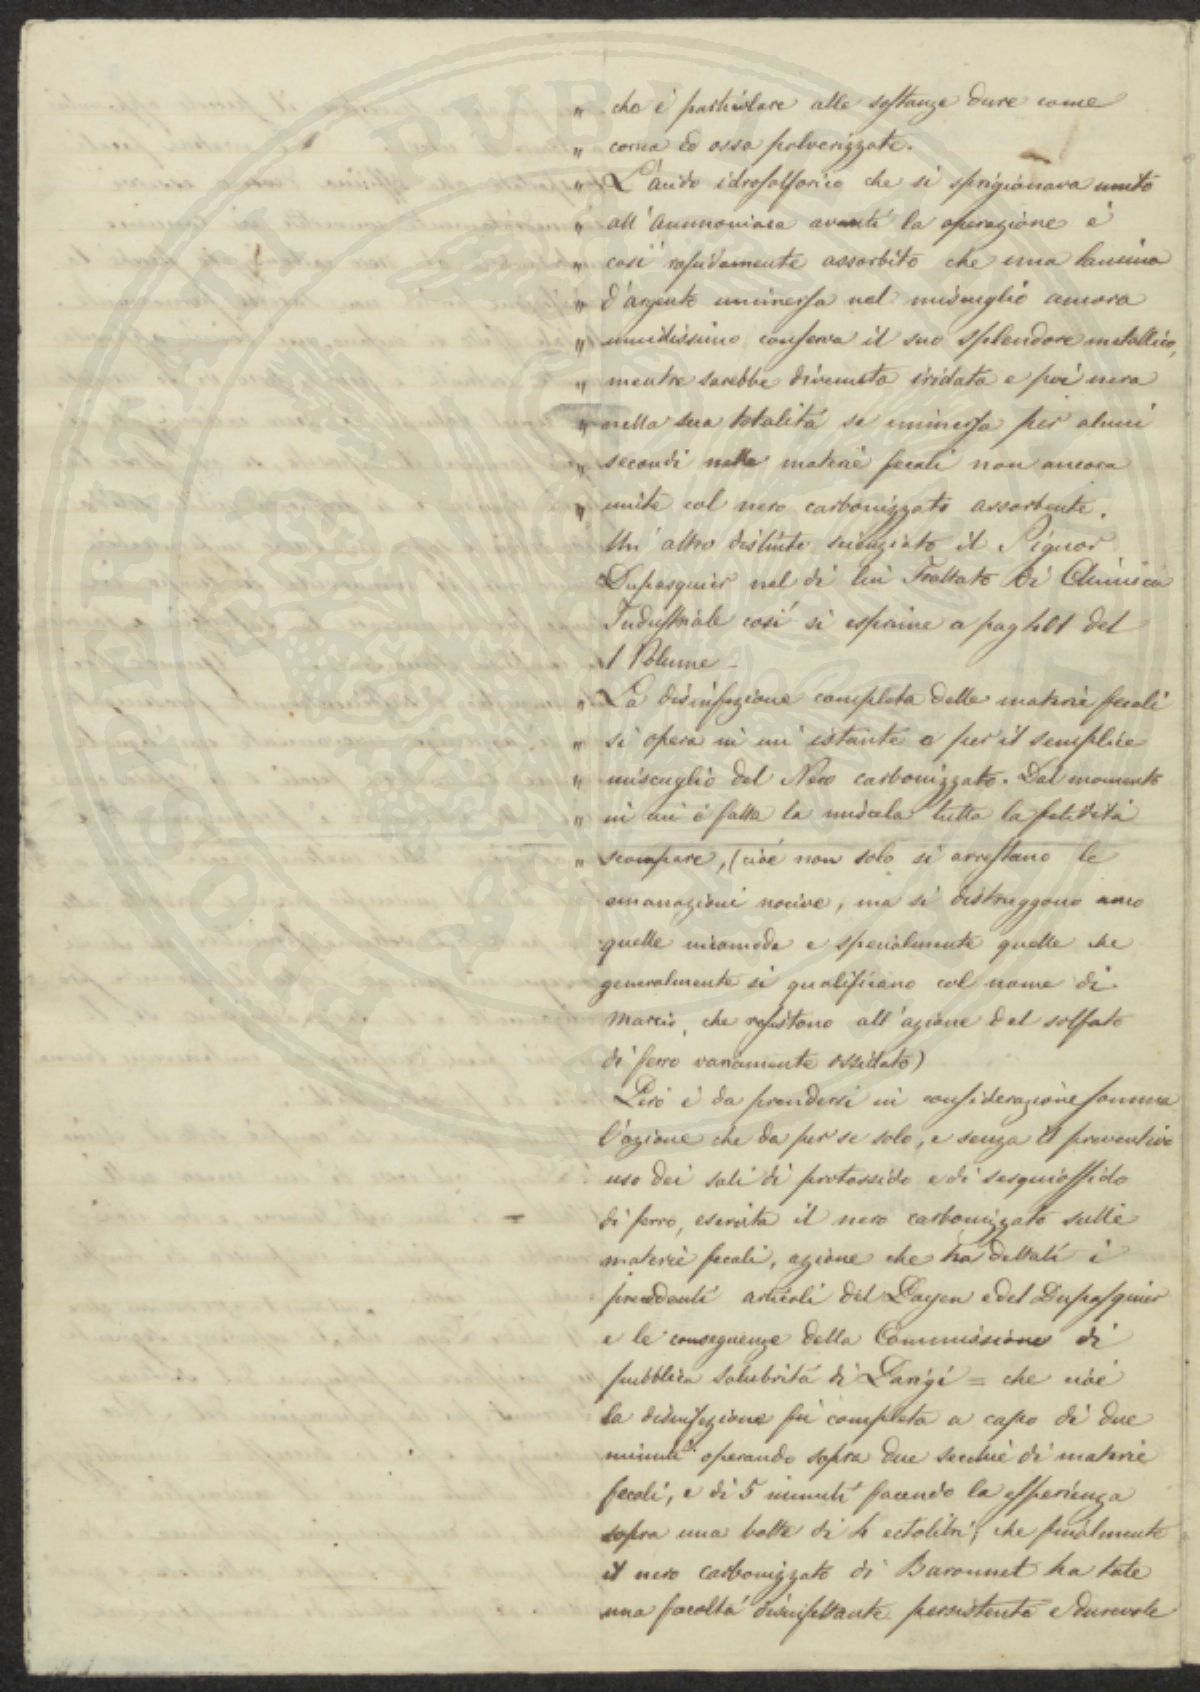 " che è particolare alle sostanze dure come
" corna ed ossa polverizzate.
" L'acido idrosolforico che si sprigionava unito
" all'ammoniaca avanti la operazione è
" così rapidamente assorbito che una lamina
" d'argento immersa nel miscuglio ancora
" umidissimo conserva il suo splendore metallico,
" mentre sarebbe divenuta iridata e poi nera
" nella sua totalità se immersa per alcuni
" secondi nelle materie fecali non ancora
" unite col nero carbonizzato assorbente.
Un'altro distinto scienziato il Signor
Dupasquier nel di lui Trattato di Chimica
Industriale così si esprime a pag 401 del
1 Volume -
" La disinfezione completa delle materie fecali
" si opera in un'istante e per il semplice
" miscuglio del Nero carbonizzato. Dal momento
" in cui è fatta la miscela tutta la fetidità
" scompare, (cioè non solo si arrestano le
emanazioni nocive, ma si distruggono anco
quelle incomode e specialmente quelle che
generalmente si qualificano col nome di
marcio, che resistono all'azione del solfato
di ferro variamente ossidato)
Però è da prendersi in considerazione somma
l'azione che da per se solo, e senza il preventivo
uso dei sali di protossido e di sesquiossido
di ferro, esercita il nero carbonizzato sulle
materie fecali, azione che ha dettati i
precedenti articoli del Payen e del Dupasquier
e le conseguenze della Commissione di
pubblica salubrità di Parigi = che cioè
la disinfezione fu completa a capo di due
minuti operando sopra due secchie di materie
fecali, e di 5 minuti facendo la esperienza
sopra una botte di 4 ectolitri; che finalmente
il nero carbonizzato di Baronnet ha tale
una facoltà disinfettante persistente e durevole